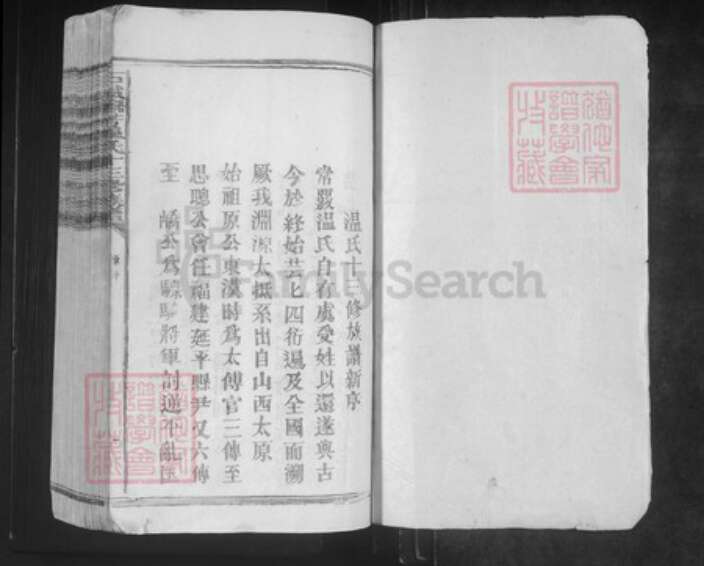 温氏十三修族譜新序
常觀温氏自有虞受姓以還遂與古
今於終始芸七四衍遍及全國而溯
厥我淵源太抵系出自山西太原
始祖原公東漢時爲太傅官三傳至
思聰公曾任福建延平縣尹又六傳
至 嶠公爲驃騎將軍討逆平亂
FamilySearch